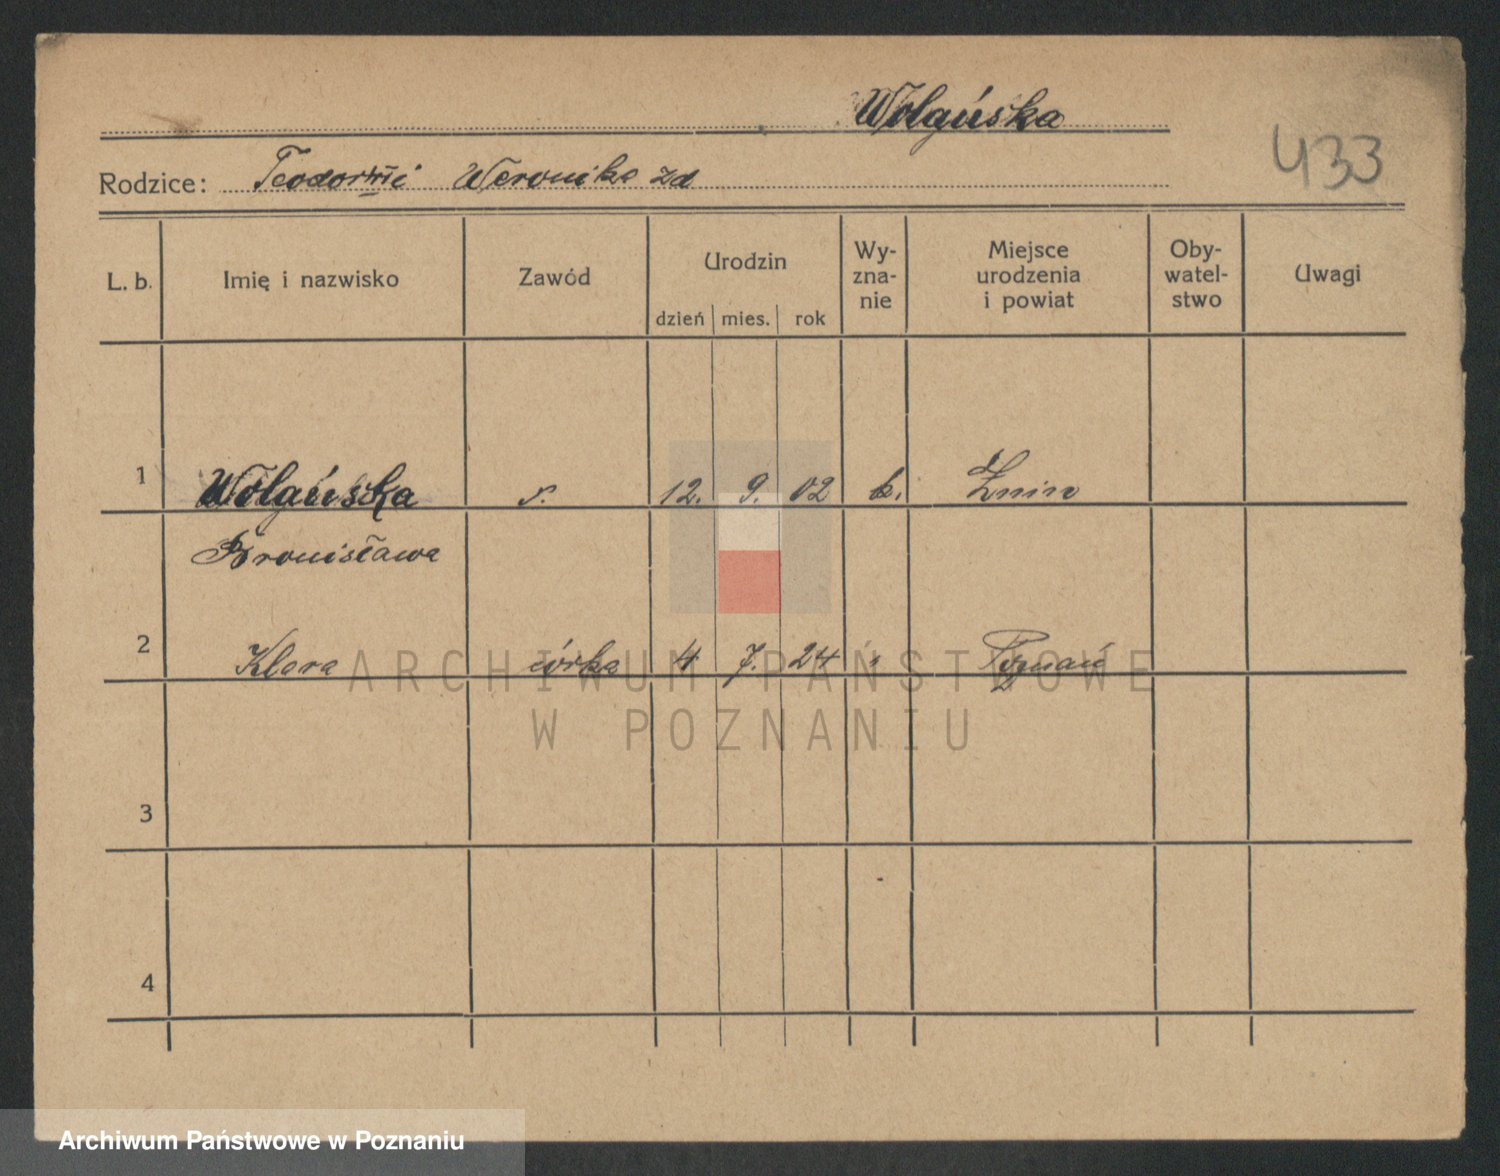 Wolgáńska
433
Rodzice: Weronika zd
L. b. Imię i nazwisko Zawód Urodzin Wy-zna-nie Miejsce urodzenia i powiat Oby-watel-stwo Uwagi
dzień mies. rok
1 Wolgáńska s. 12. 9. 02 k. Żnin
Bronisława
2 Klara córka 4 7. 24 " Poznań
ARCHIWUM PAŃSTWOWE
W POZNANIU
3
4
Archiwum Państwowe w Poznaniu